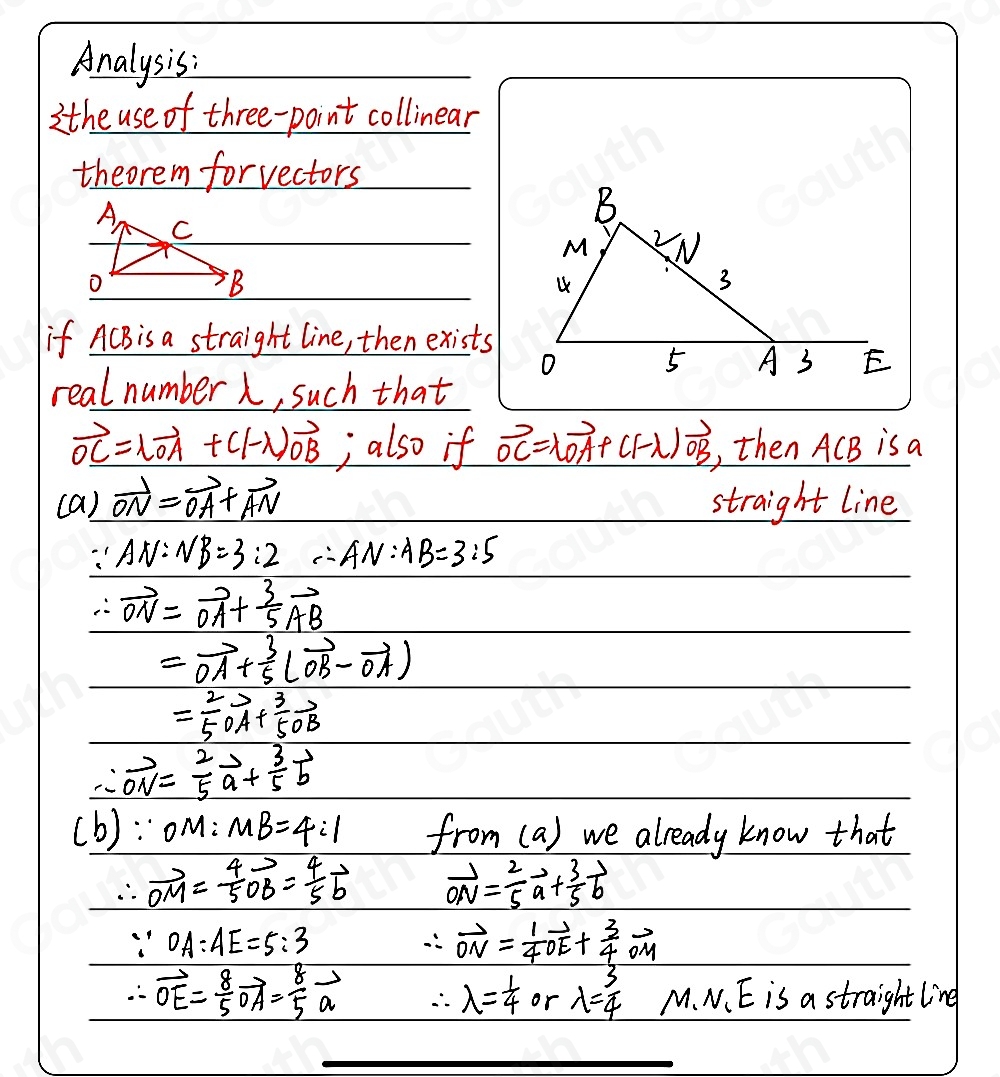 Analysis:
the use of three-point collinear
theorem for vectors
A C
O B
if ACB is a straight line, then exists
real number λ, such that
→OC = λ→OA + (1-λ)→OB ; also if →OC = λ→OA + (1-λ)→OB, then ACB is a
straight line
B
M 1 2 N
4 3
O 5 A 3 E
(a) →ON = →OA + →AN
∵ AN:NB=3:2 ∴ AN:AB=3:5
∴ →ON = →OA + 3/5 →AB
= →OA + 3/5 (→OB - →OA)
= 2/5 →OA + 3/5 →OB
∴ →ON = 2/5 →a + 3/5 →b
(b) ∵ OM:MB=4:1 from (a) we already know that
∴ →OM = 4/5 →OB = 4/5 →b →ON = 2/5 →a + 3/5 →b
∵ OA:AE=5:3 ∴ →ON = 1/4 →OE + 3/4 →OM
∴ →OE = 8/5 →OA = 8/5 →a ∴ λ=1/4 or λ=3/4 M.N.E is a straight line
Gauth